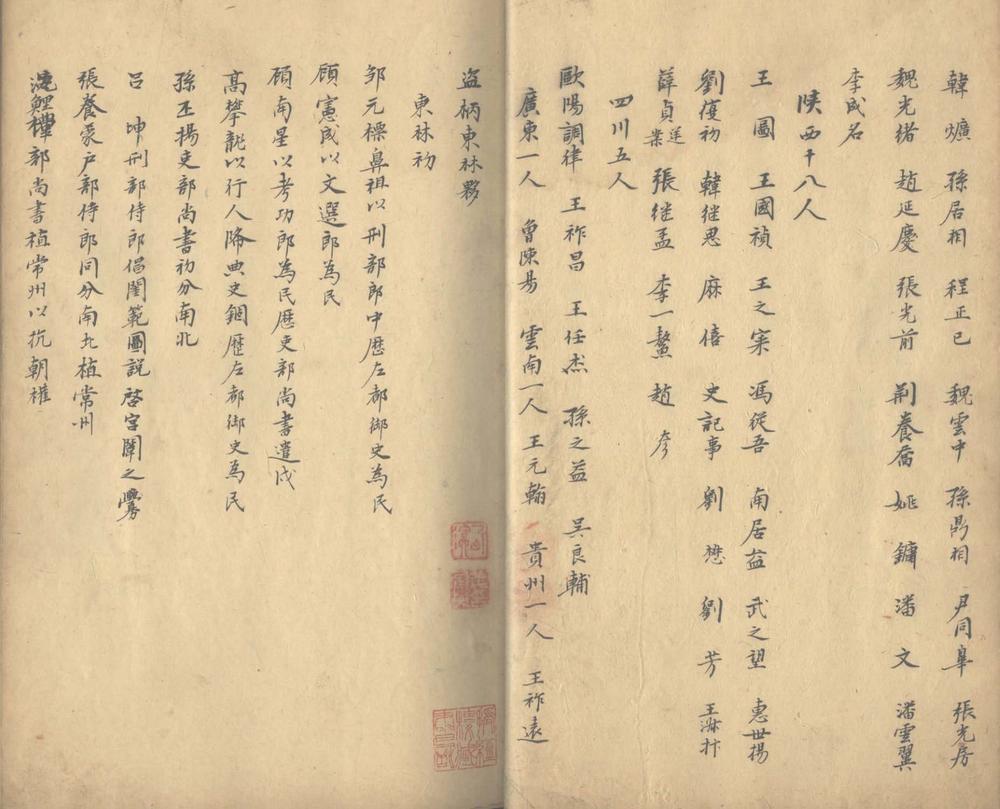 韓爌 孫居相 程正己 魏雲中 孫鼎相 尹同皐 張光房
魏光緒 趙延慶 張光前 荆養喬 姚鏞 潘文 潘雲翼
李成名
陝西十八人
王圖 王國禎 王之寀 馮從吾 南居益 武之望 惠世揚
劉復初 韓継思 麻僖 史記事 劉懋 劉芳 王淋抃
薛貞逆案 張継孟 李一鰲 趙彥
四川五人
歐陽調律 王祚昌 王任杰 孫之益 吴良輔
廣東一人 曾陳昜 雲南一人 王元翰 貴州一人 王祚遠
盜柄東林夥
東林初
邹元標鼻祖以刑部郎中歷左都御史為民
顧憲成以文選郎為民
顧南星以考功郎為民歷吏部尚書遣戍
高攀龍以行人降典史錮歷左都御史為民
孫丕揚吏部尚書初分南北
吕坤刑部侍郎倡閨範圖說啓宮闈之釁
張養蒙户部侍郎同分南北植常州
部尚書植常州以抗朝權